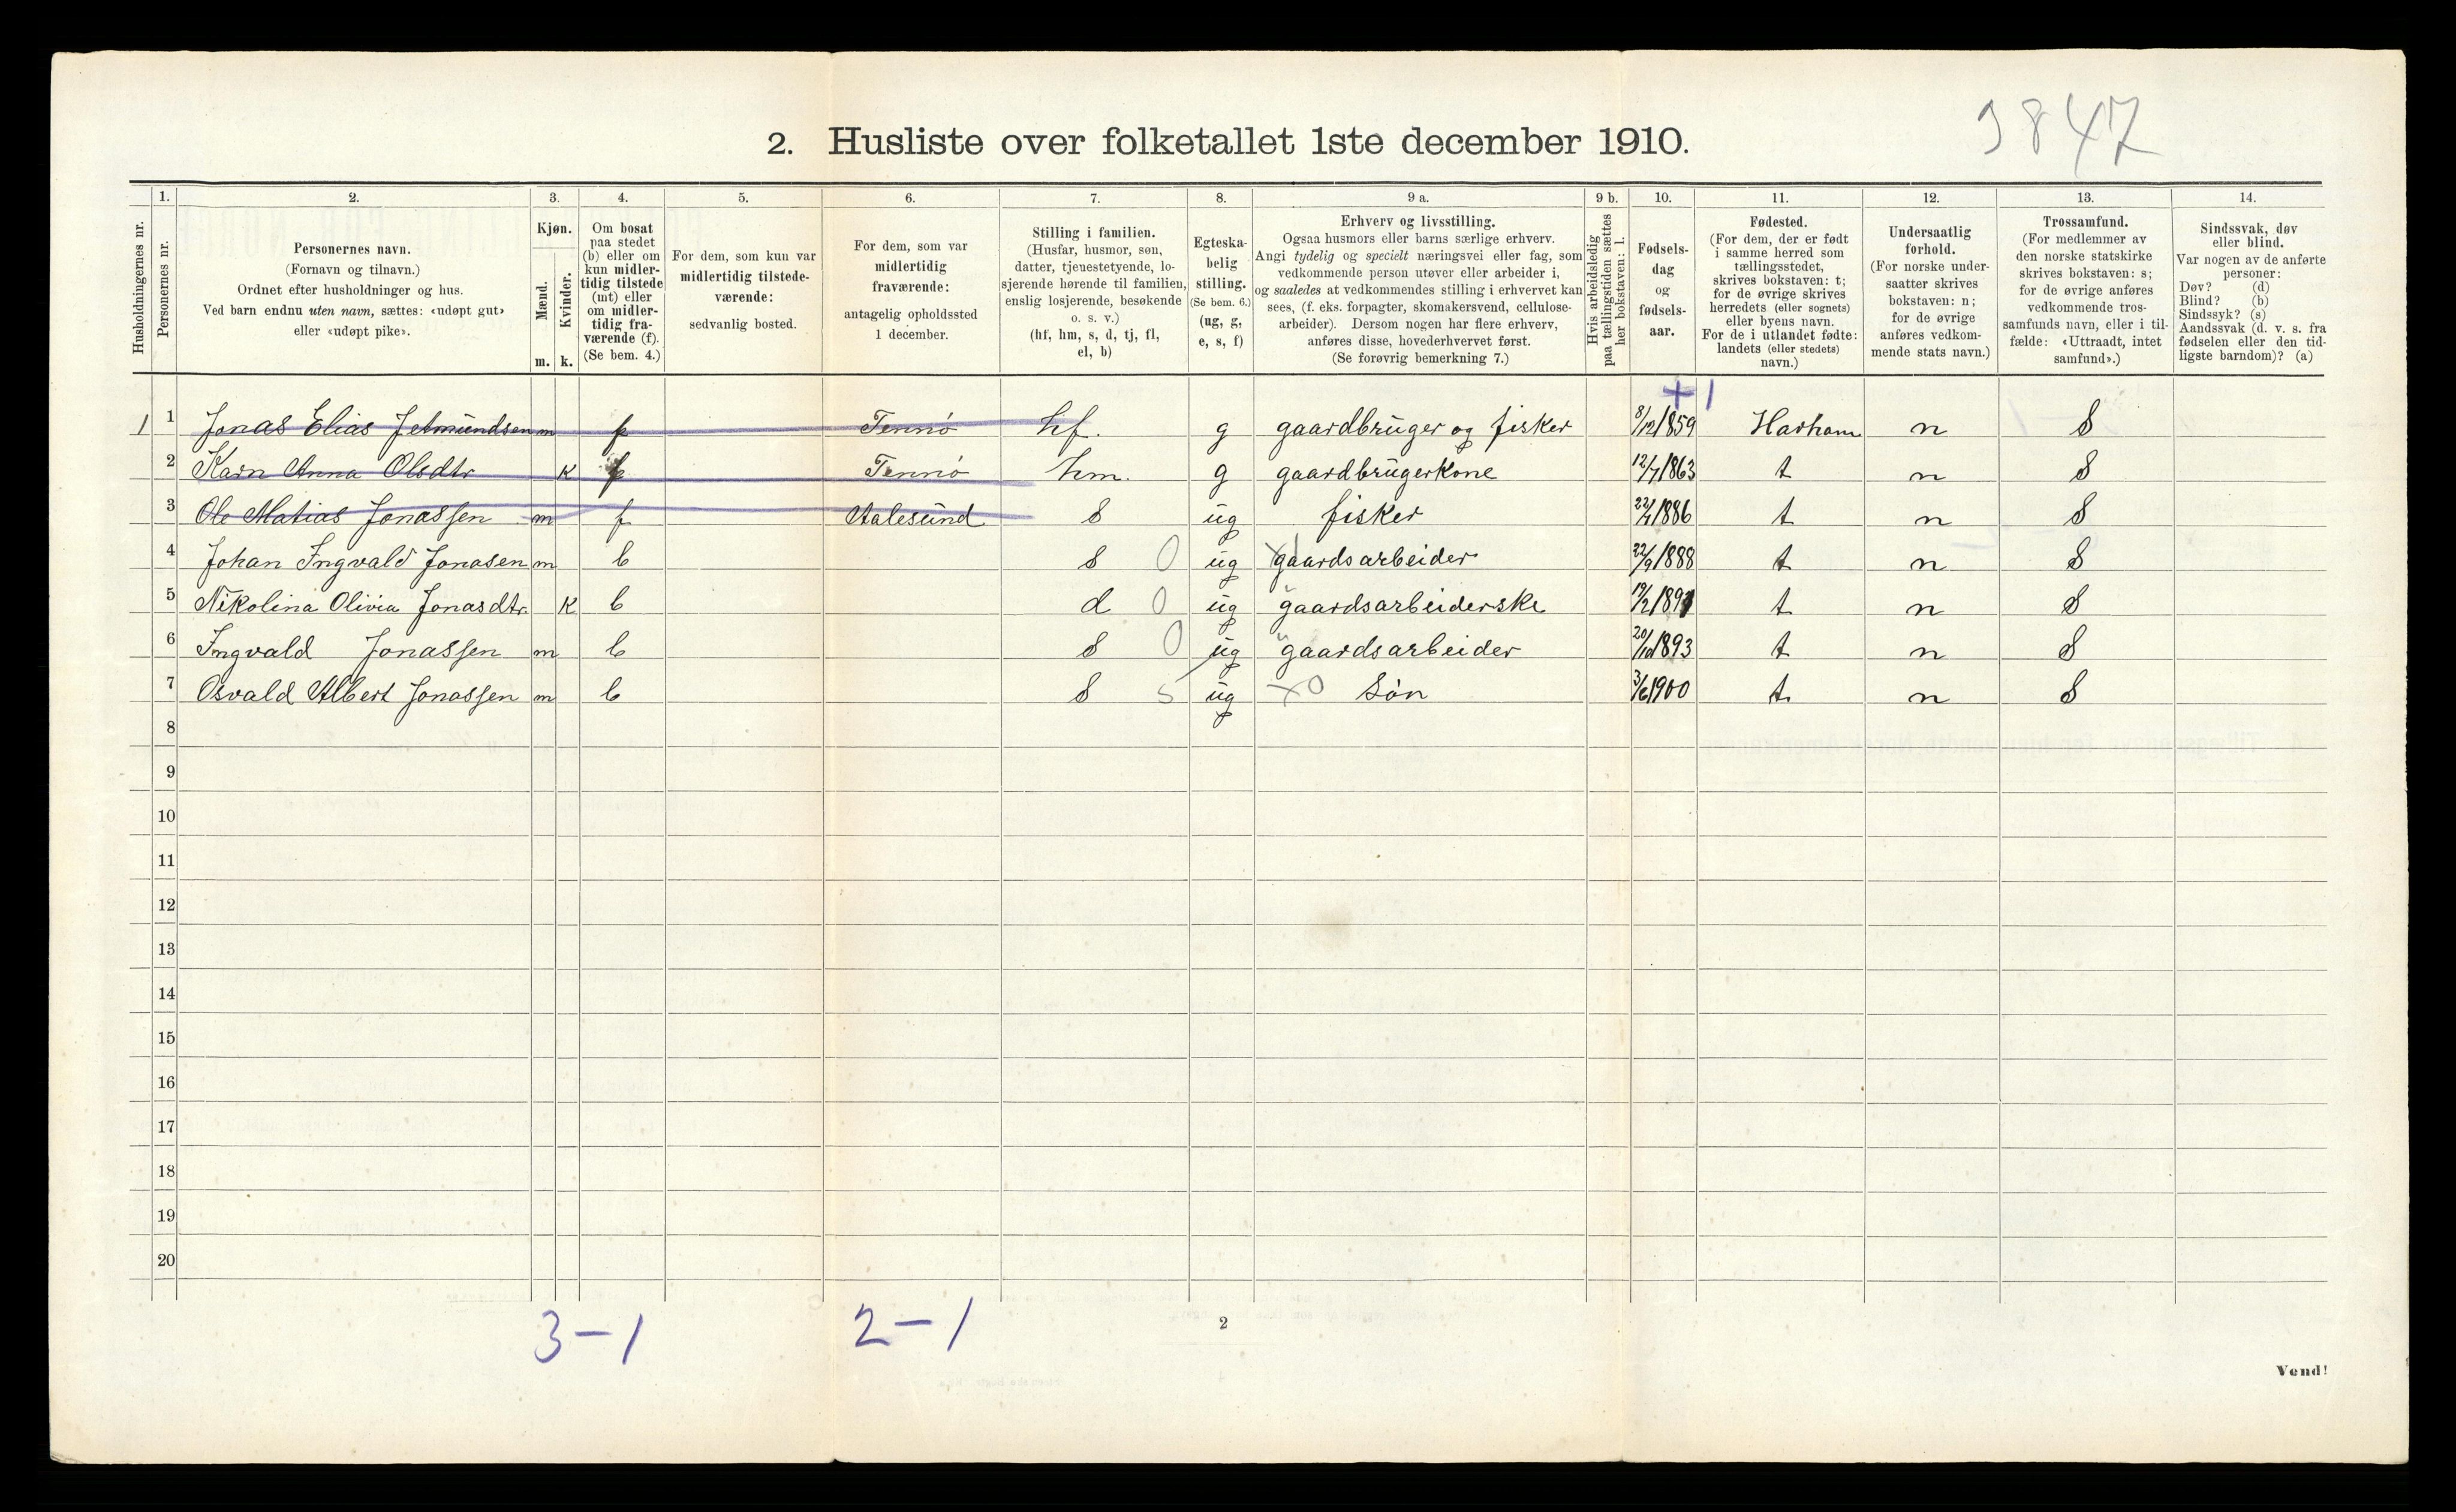 3847
2. Husliste over folketallet 1ste december 1910.
1. 2. 3. 4. 5. 6. 7. 8. 9 a. 9 b. 10. 11. 12. 13. 14.
Husholdningernes nr.
Personernes nr.
Personernes navn.
(Fornavn og tilnavn.)
Ordnet efter husholdninger og hus.
Ved barn endnu uten navn, sættes: «udøpt gut»
eller «udøpt pike».
Kjøn.
Mænd.
Kvinder.
m. k.
Om bosat
paa stedet
(b) eller om
kun midler-
tidig tilstede
(mt) eller
om midler-
tidig fra-
værende (f).
(Se bem. 4.)
For dem, som kun var
midlertidig tilstede-
værende:
sedvanlig bosted.
For dem, som var
midlertidig
fraværende:
antagelig opholdssted
1 december.
Stilling i familien.
(Husfar, husmor, søn,
datter, tjenestetyende, lo-
sjerende hørende til familien,
enslig losjerende, besøkende
o. s. v.)
(hf, hm, s, d, tj, fl,
el, b)
Egteska-
belig
stilling.
(Se bem. 6.)
(ug, g,
e, s, f)
Erhverv og livsstilling.
Ogsaa husmors eller barns særlige erhverv.
Angi tydelig og specielt næringsvei eller fag, som
vedkommende person utøver eller arbeider i,
og saaledes at vedkommendes stilling i erhvervet kan
sees, (f. eks. forpagter, skomakersvend, cellulose-
arbeider). Dersom nogen har flere erhverv,
anføres disse, hovederhvervet først.
(Se forøvrig bemerkning 7.)
Hvis arbeidsledig
paa tællingstiden sættes
her bokstaven: l.
Fødsels-
dag
og
fødsels-
aar.
Fødested.
(For dem, der er født
i samme herred som
tællingsstedet,
skrives bokstaven: t;
for de øvrige skrives
herredets (eller sognets)
eller byens navn.
For de i utlandet fødte:
landets (eller stedets)
navn.)
Undersaatlig
forhold.
(For norske under-
saatter skrives
bokstaven: n;
for de øvrige
anføres vedkom-
mende stats navn.)
Trossamfund.
(For medlemmer av
den norske statskirke
skrives bokstaven: s;
for de øvrige anføres
vedkommende tros-
samfunds navn, eller i til-
fælde: «Uttraadt, intet
samfund».)
Sindssvak, døv
eller blind.
Var nogen av de anførte
personer:
Døv? (d)
Blind? (b)
Sindssyk? (s)
Aandssvak (d. v. s. fra
fødselen eller den tid-
ligste barndom)? (a)
+1
1 1 Jonas Elias Jetmundsen m f Tennø hf. g gaardbruger og fisker 8/12 1859 Harham n S
2 Karn Anna Olsdtr k f Tennø hm. g gaardbrugerkone 12/7 1863 t n S
3 Ole Matias Jonassen m f Aalesund s ug fisker 1886 t n S
4 Johan Ingvald Jonasen m b s 0 ug gaardsarbeider 22/9 1888 t n S
5 Nikolina Olivia Jonasdtr. k b d 0 ug gaardsarbeiderske 19/2 1891 t n S
6 Ingvald Jonassen m b s 0 ug gaardsarbeider 20/10 1893 t n S
7 Osvald Albert Jonassen m b s 5 ug x0 Søn 3/6 1900 t n S
8
9
10
11
12
13
14
15
16
17
18
19
20
3-1 2-1
2
Vend!